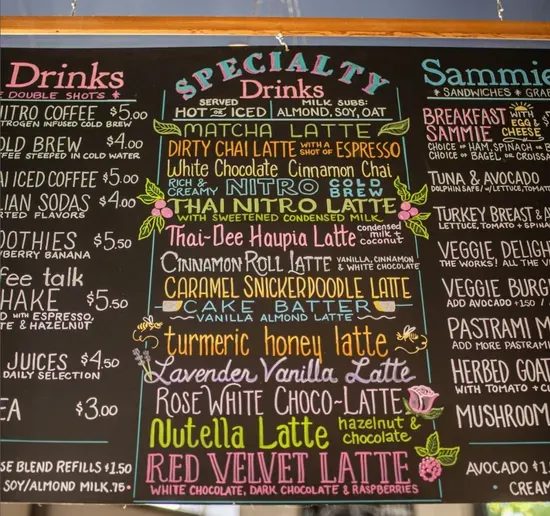 Drinks
DOUBLE SHOTS
NITRO COFFEE $5.00
NITROGEN INFUSED COLD BREW
COLD BREW $4.00
COFFEE STEEPED IN COLD WATER
ICED COFFEE $5.00
SODAS $4.00
FLAVORS
$5.50
BANANA
talk
SHAKE $5.50
WITH ESPRESSO,
& HAZELNUT
JUICES $4.50
DAILY SELECTION
$3.00
BLEND REFILLS $1.50
SOY/ALMOND MILK .75
SPECIALTY
Drinks
SERVED
HOT OR ICED
MILK SUBS:
ALMOND, SOY, OAT
MATCHA LATTE
DIRTY CHAI LATTE WITH A SHOT OF ESPRESSO
White Chocolate Cinnamon Chai
RICH & CREAMY NITRO COLD BREW
THAI NITRO LATTE
WITH SWEETENED CONDENSED MILK
Thai-Dee Haupia Latte condensed milk + coconut
CINNAMON ROLL LATTE VANILLA, CINNAMON & WHITE CHOCOLATE
CARAMEL SNICKERDOODLE LATTE
CAKE BATTER
VANILLA ALMOND LATTE
turmeric honey latte
Lavender Vanilla Latte
ROSE WHITE CHOCO-LATTE
Nutella Latte hazelnut & chocolate
RED VELVET LATTE
WHITE CHOCOLATE, DARK CHOCOLATE & RASPBERRIES
Sammie
SANDWICHES
BREAKFAST SAMMIE WITH EGG & CHEESE
CHOICE OF HAM, SPINACH
CHOICE OF BAGEL OR
TUNA & AVOCADO
DOLPHIN SAFE W/ LETTUCE,
TURKEY BREAST &
LETTUCE, TOMATO +
VEGGIE
THE WORKS! ALL THE
VEGGIE
ADD AVOCADO +1.50
PASTRAMI
ADD MORE
HERBED
WITH TOMATO +
MUSHROOM
AVOCADO